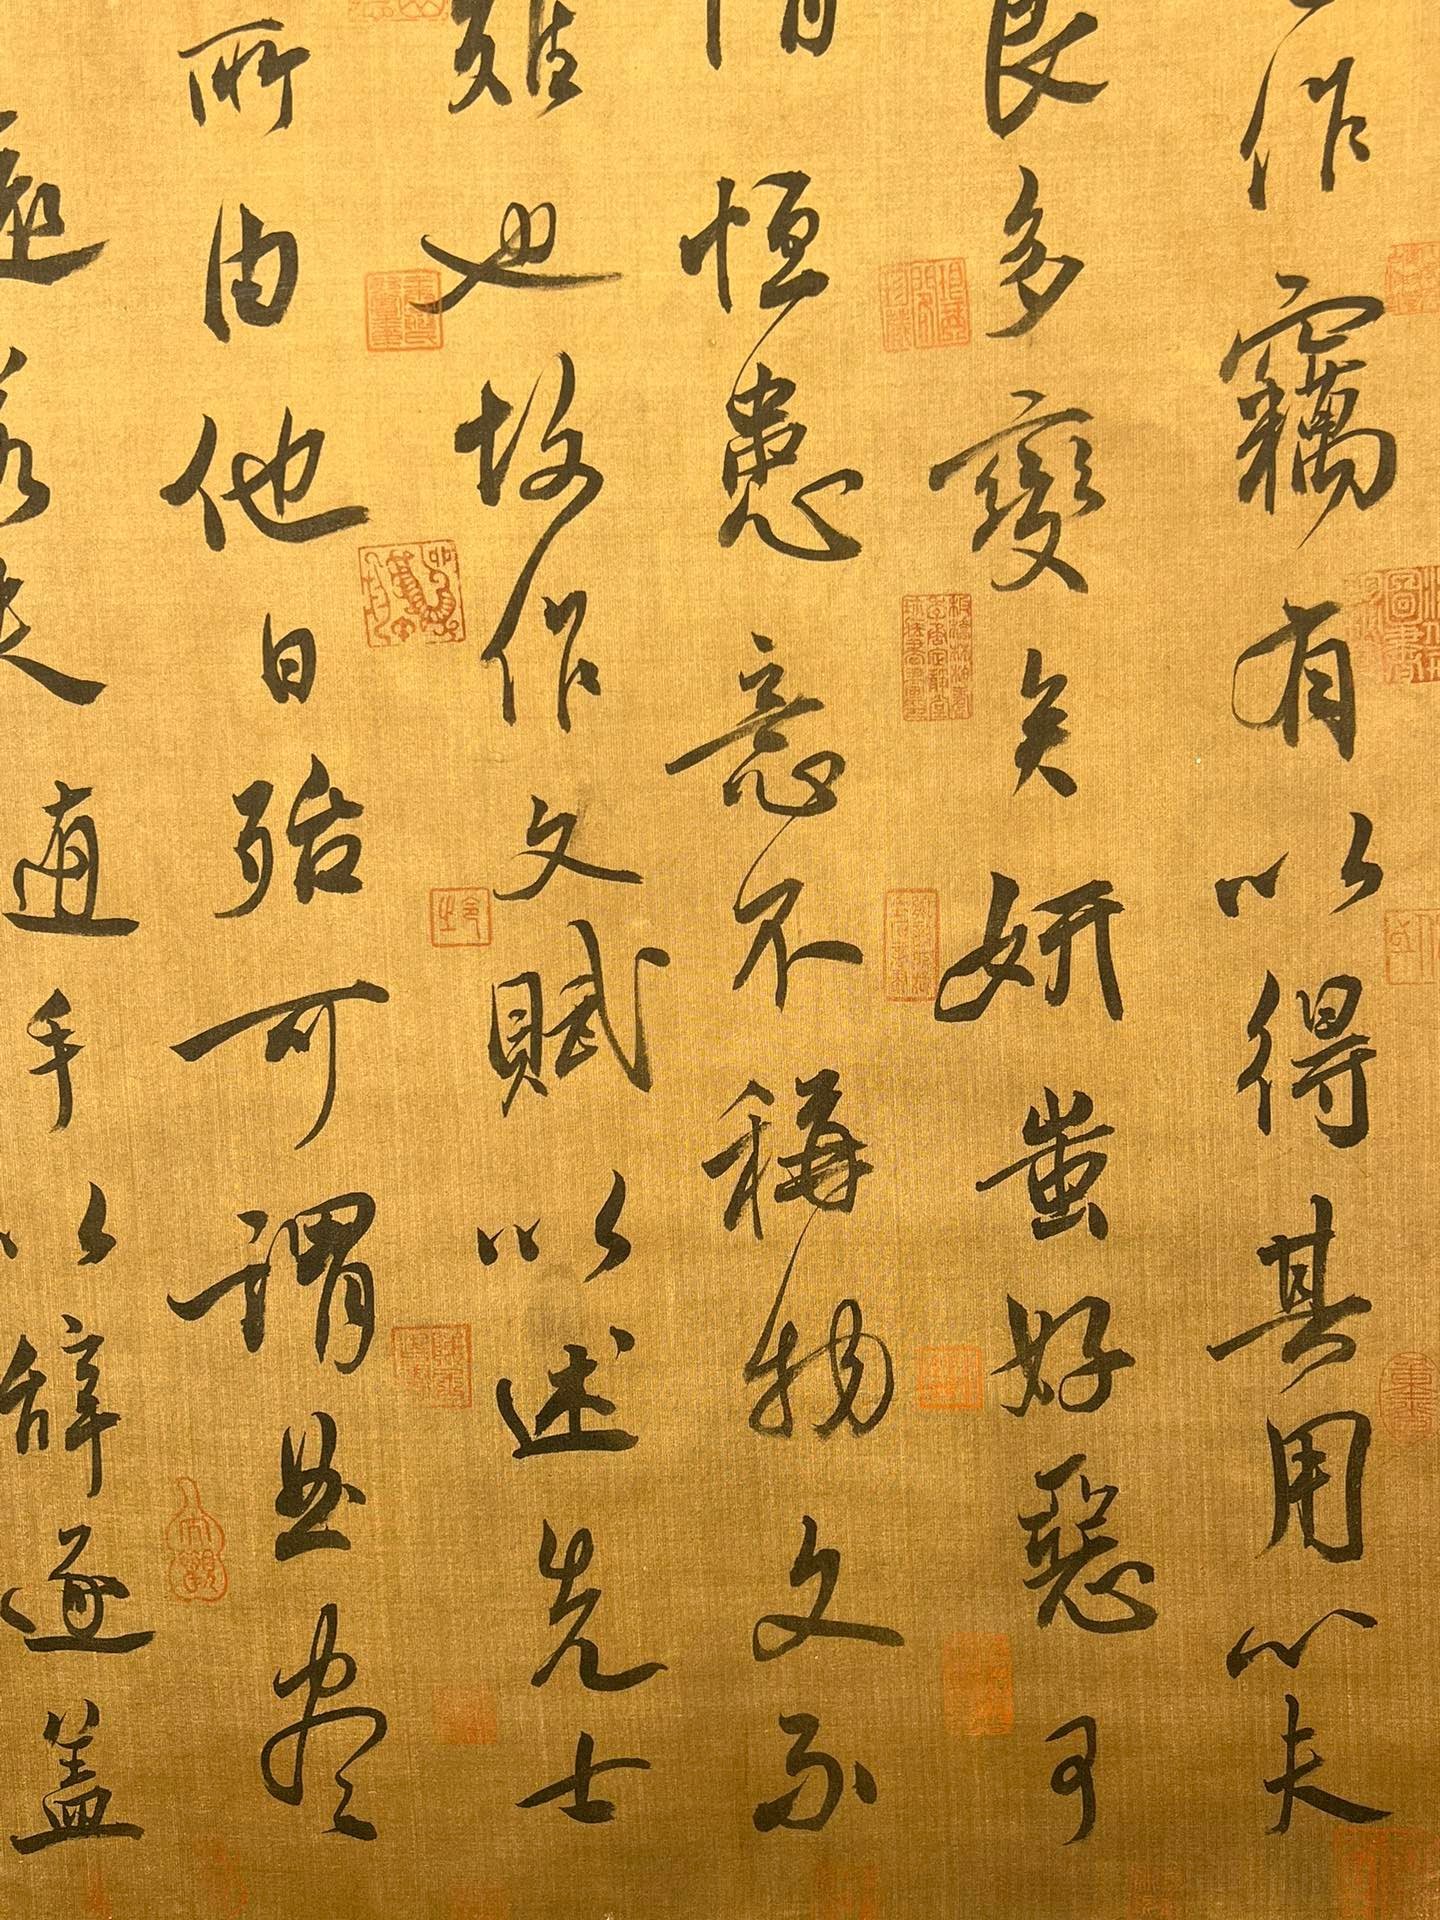 作竊有以得其用心夫
良多變矣妍蚩好惡可
情恒患意不稱物文不
難也故作文賦以述先士
所由他日殆可謂曲盡
遠若夫隨手以辭逐蓋